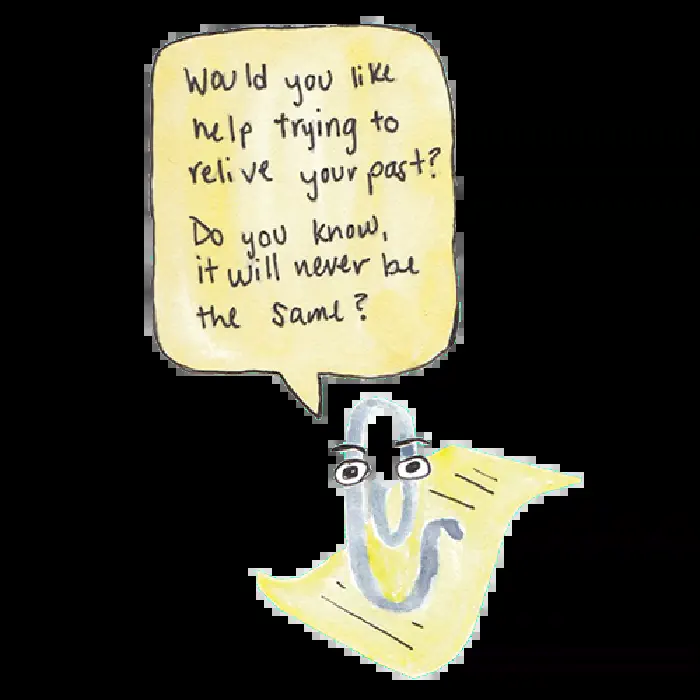 Would you like
help trying to
relive your past?
Do you know,
it will never be
the same?